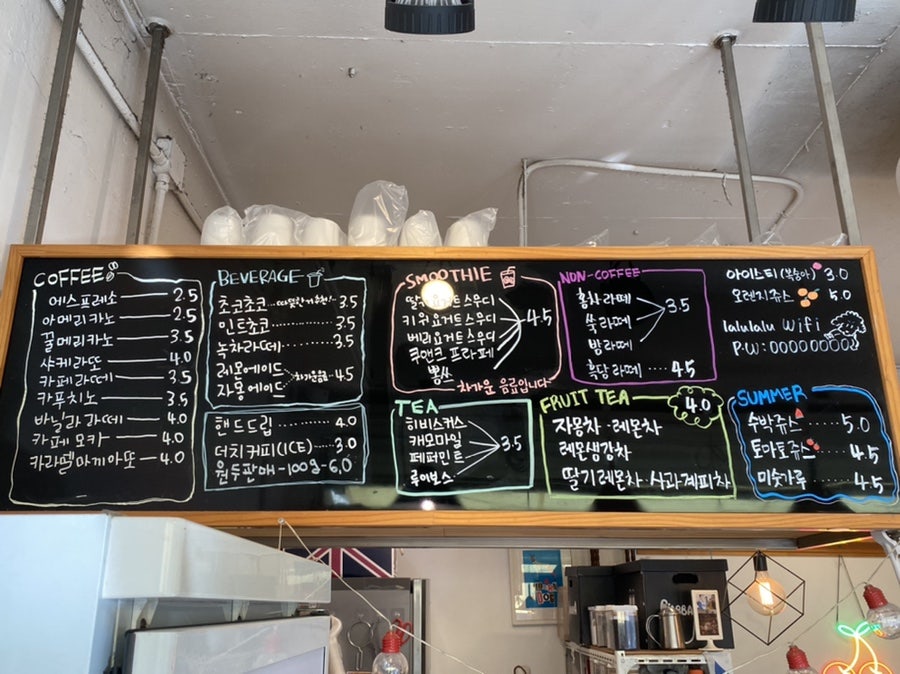 COFFEE
에스프레소 2.5
아메리카노 2.5
꿀메리카노 3.5
샤케라또 4.0
카페라떼 3.5
카푸치노 3.5
바닐라라떼 4.0
카페모카 4.0
카라멜마끼아또 4.0
BEVERAGE
초코초코 3.5
민트초코 3.5
녹차라떼 3.5
레몬에이드
자몽에이드 차가운음료 4.5
핸드드립 4.0
더치커피(ICE) 3.0
원두판매-100g-6.0
SMOOTHIE
요거트스무디
키위요거트스무디
베리요거트스무디 4.5
쿠앤크 프라페
뽕쓰
차가운 음료입니다
NON-COFFEE
홍차라떼
쑥라떼 3.5
밤라떼
흑당라떼 4.5
아이스티(복숭아) 3.0
오렌지쥬스 5.0
lalulalu Wifi
P.W:00000000
TEA
히비스커스
캐모마일
페퍼민트 3.5
루이보스
FRUIT TEA 4.0
자몽차·레몬차
레몬생강차
딸기레몬차·사과계피차
SUMMER
수박쥬스 5.0
토마토쥬스 4.5
미숫가루 4.5